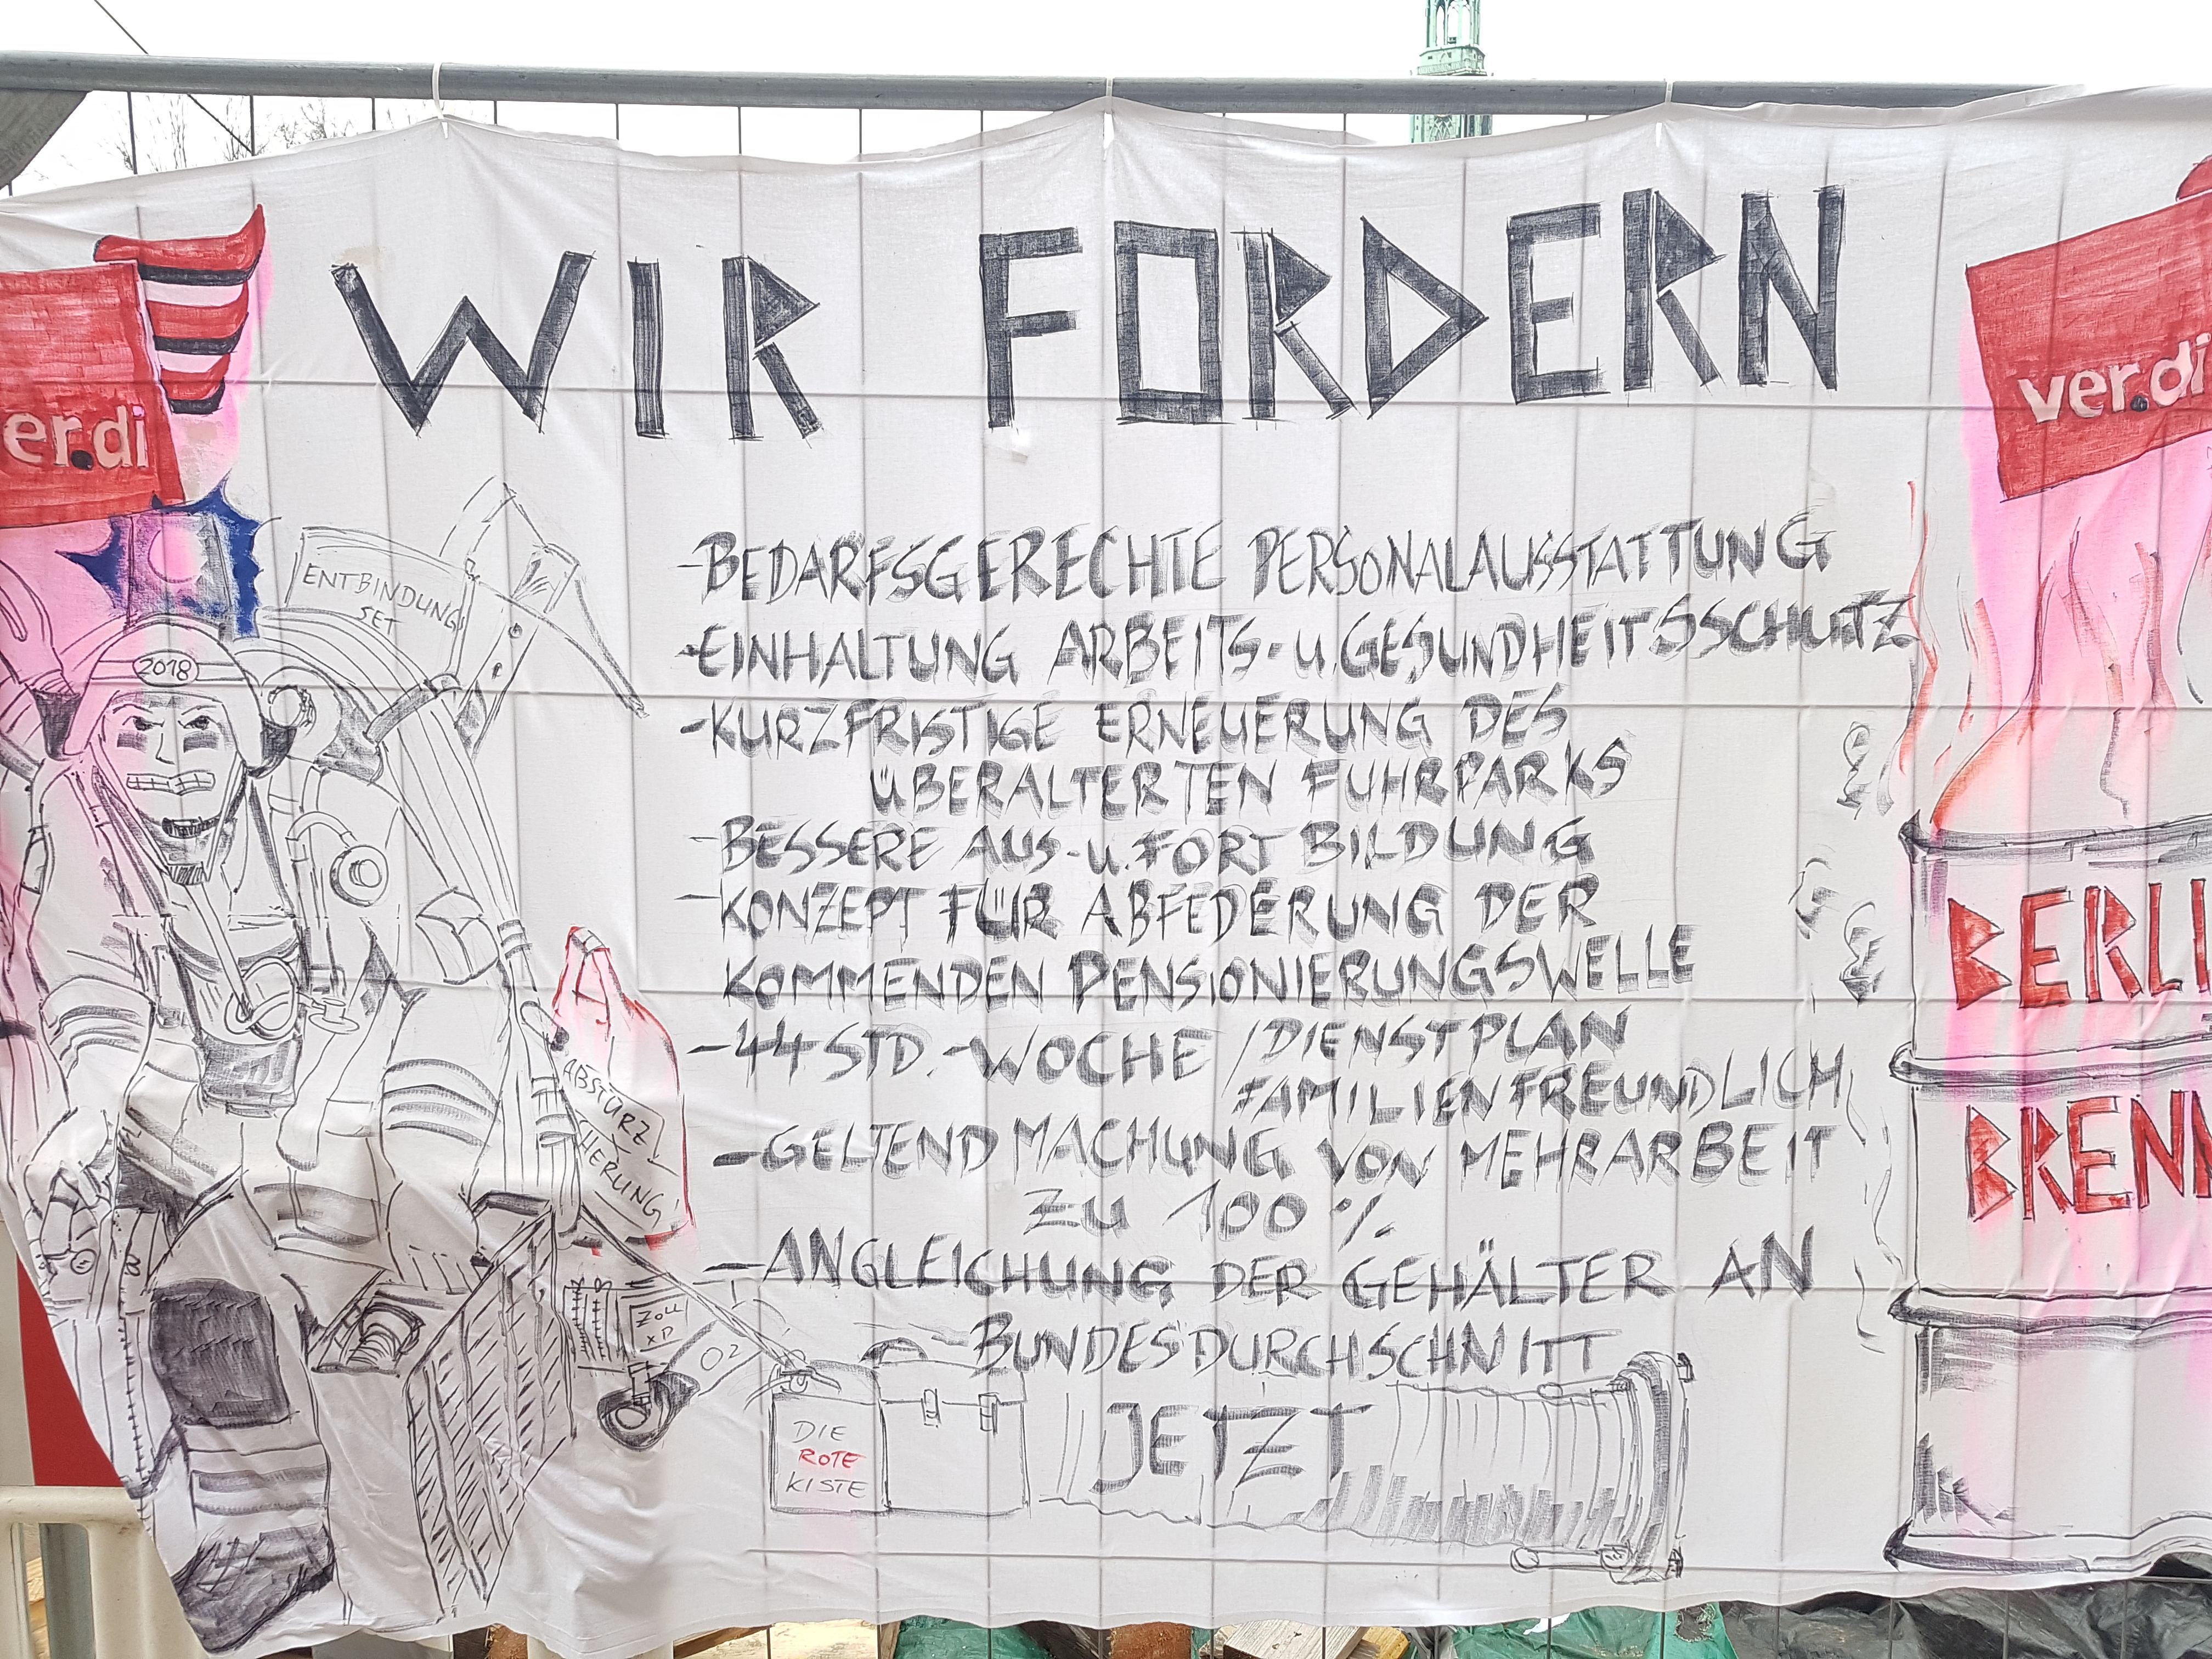 WIR FORDERN
er.di
ver.di
ENTBINDUNGS
SET
2018
-BEDARFSGERECHTE PERSONALAUSSTATTUNG
-EINHALTUNG ARBEITS- u. GESUNDHEITSSCHUTZ
-KURZFRISTIGE ERNEUERUNG DES
ÜBERALTERTEN FUHRPARKS
-BESSERE AUS- u. FORTBILDUNG
-KONZEPT FÜR ABFEDERUNG DER
KOMMENDEN PENSIONIERUNGSWELLE
-44 STD.-WOCHE / DIENSTPLAN
FAMILIENFREUNDLICH
-GELTENDMACHUNG VON MEHRARBEIT
ZU 100 %
-ANGLEICHUNG DER GEHÄLTER AN
BUNDESDURCHSCHNITT
JETZT
ABSTURZ
SICHERUNG
O2
DIE
ROTE
KISTE
BERLI
BREN